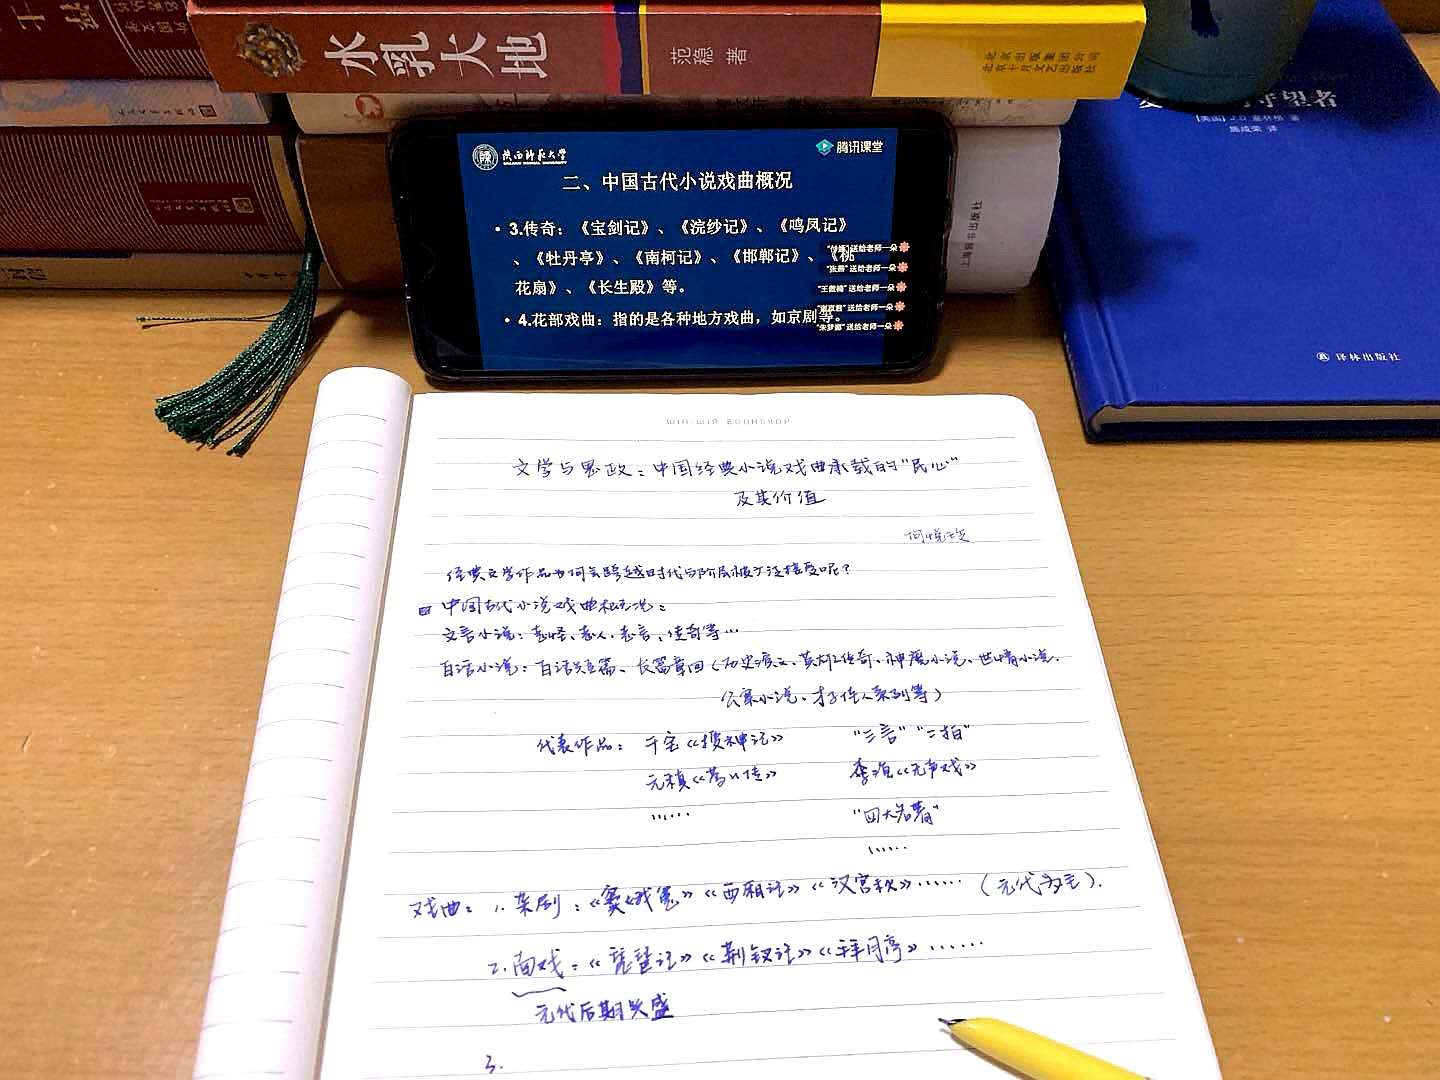 水乳大地
范稳 著
北京出版集团公司
北京十月文艺出版社
守望者
[美国] J.D.塞林格 著
施咸荣 译
译林出版社
上海辞书出版社
陕西师范大学
腾讯课堂
二、中国古代小说戏曲概况
• 3.传奇：《宝剑记》、《浣纱记》、《鸣凤记》
、《牡丹亭》、《南柯记》、《邯郸记》、《桃
花扇》、《长生殿》等。
• 4.花部戏曲：指的是各种地方戏曲，如京剧等。
送给老师一朵
送给老师一朵
送给老师一朵
送给老师一朵
"朱梦娜"送给老师一朵
WIN-WIN BOOKSHOP
文学与思政：中国经典小说戏曲承载的"民心"
及其价值
何悦玲
经典文学作品为何会跨越时代与阶层被广泛接受呢？
中国古代小说戏曲概况：
文言小说：志怪、志人、志言、传奇等…
白话小说：白话短篇、长篇章回（历史演义、英雄传奇、神魔小说、世情小说、
公案小说、才子佳人系列等）
代表作品： 干宝《搜神记》 "三言""二拍"
元稹《莺莺传》 李渔《无声戏》
…… "四大名著"
……
戏曲：1.杂剧：《窦娥冤》《西厢记》《汉宫秋》……（元代为主）.
2.南戏：《琵琶记》《荆钗记》《拜月亭》……
元代后期兴盛
3.